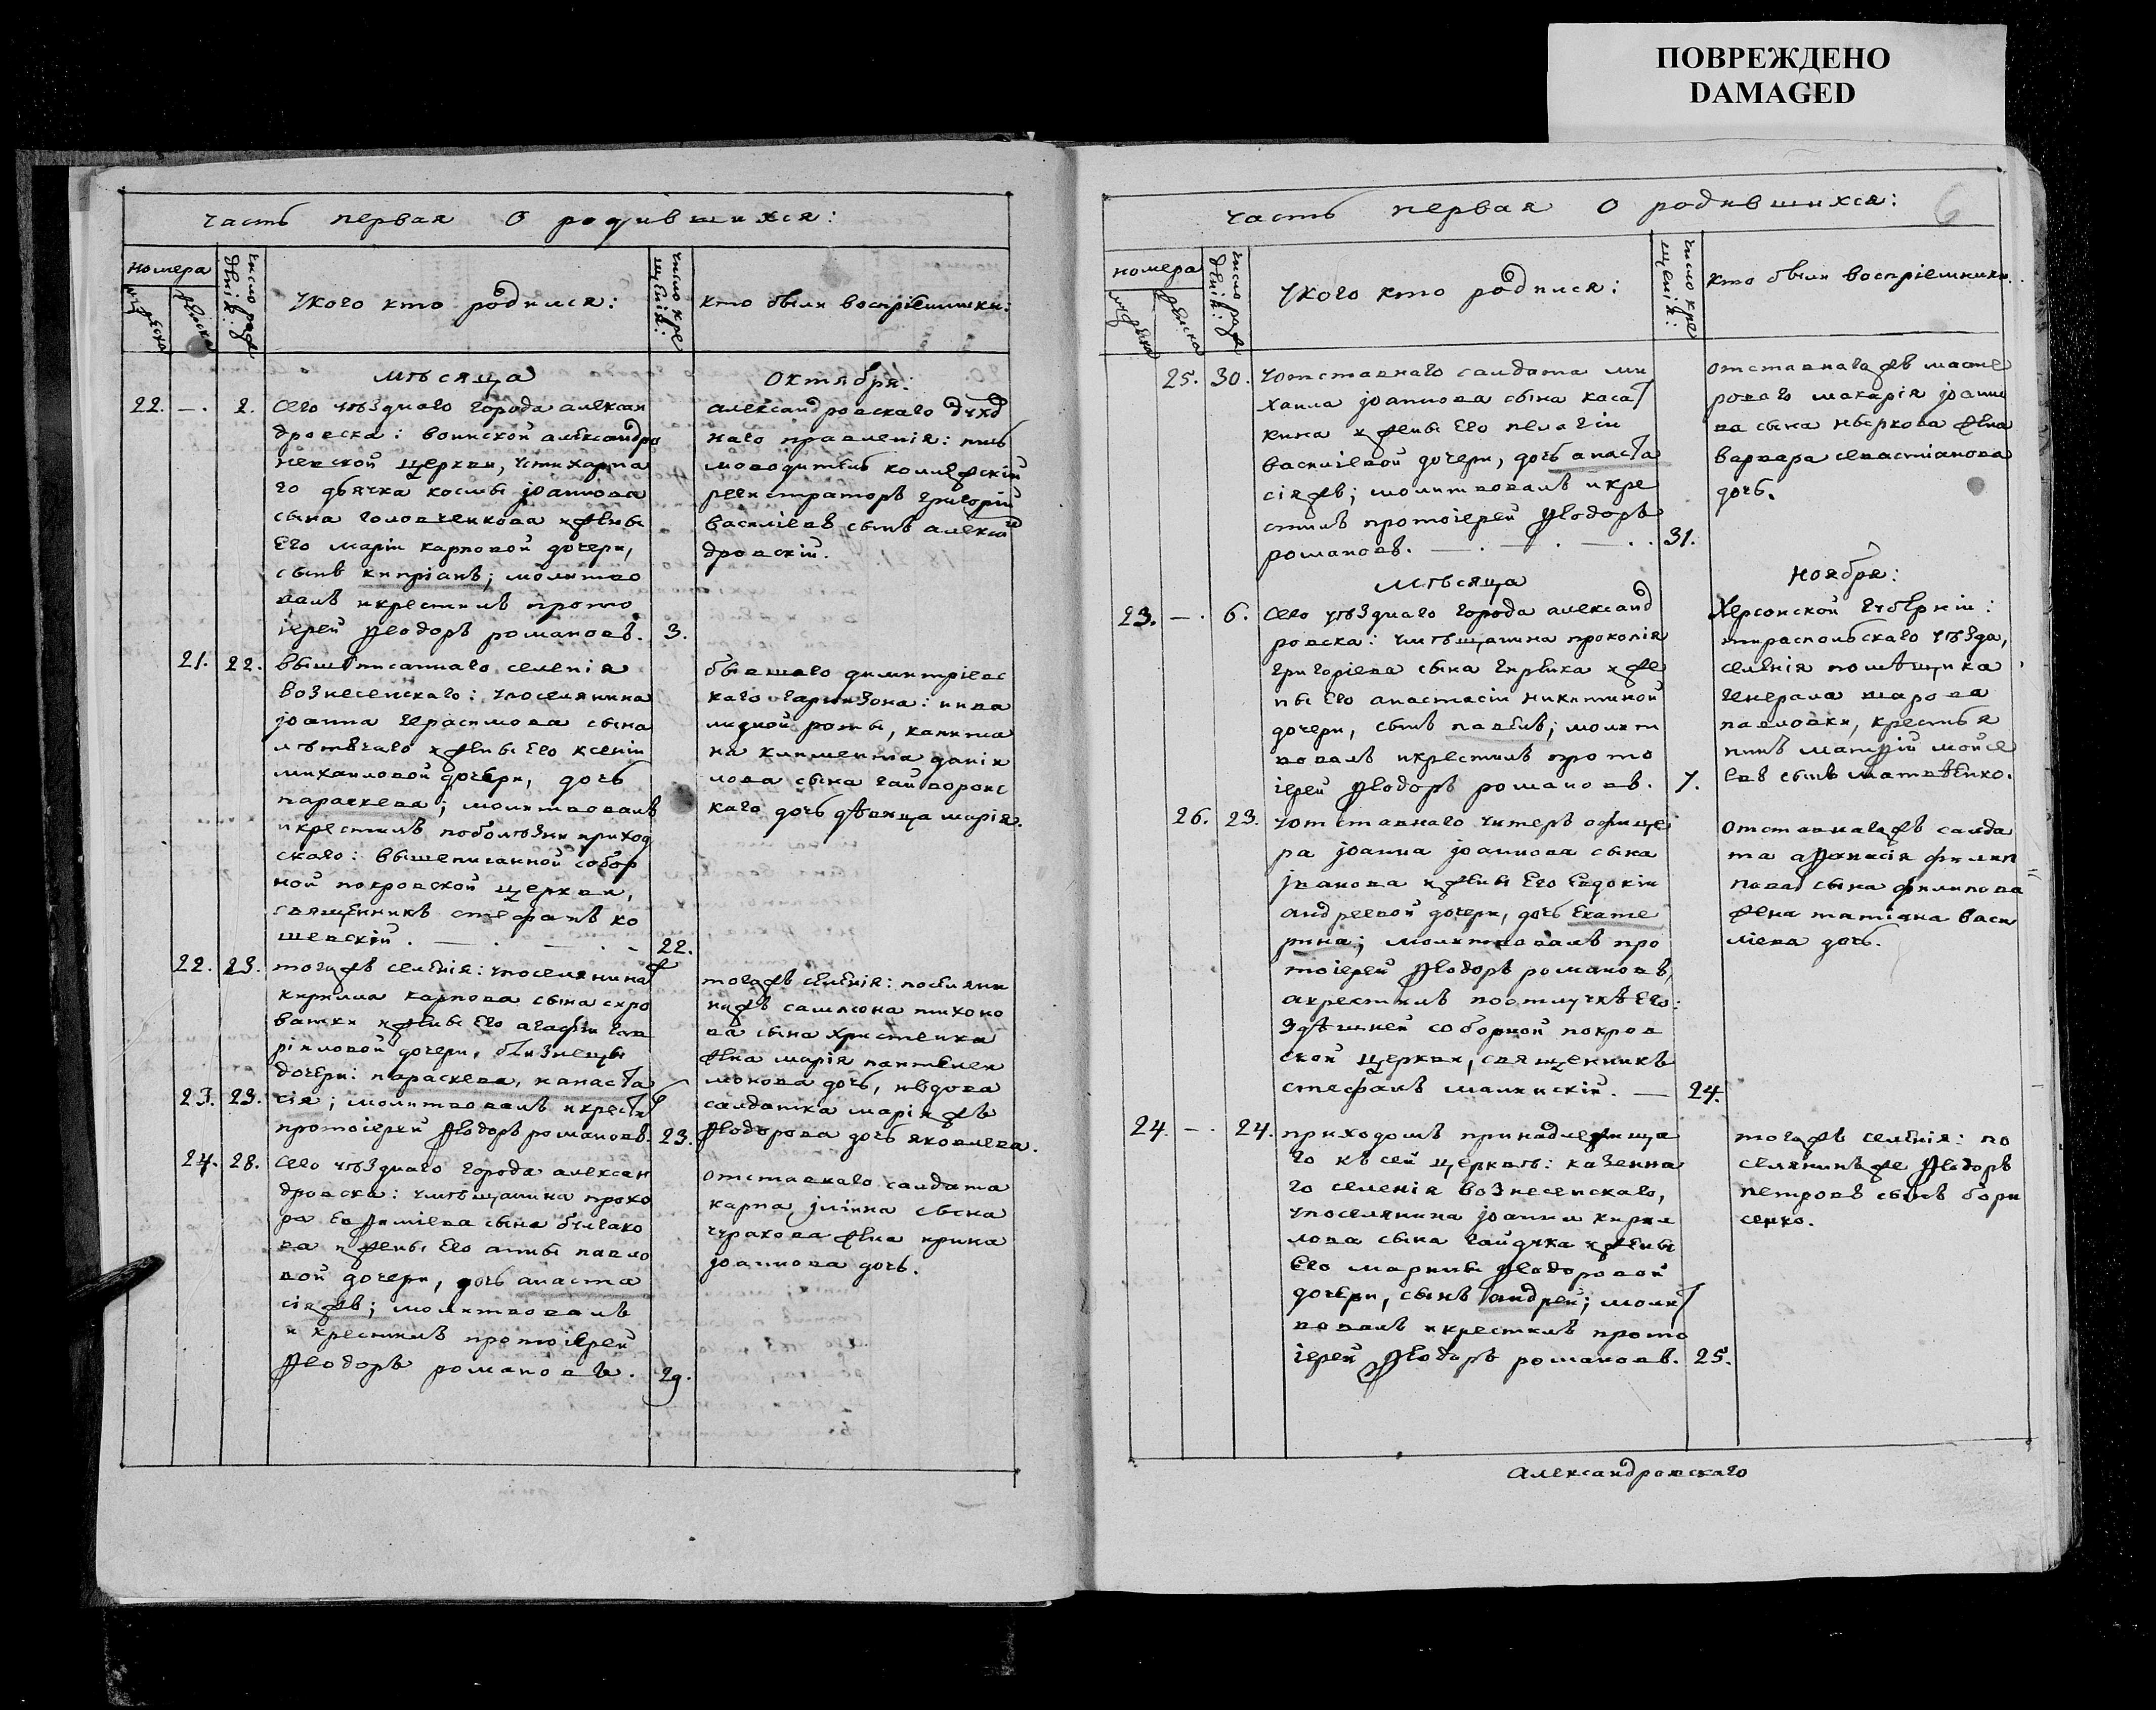 ПОВРЕЖДЕНО
DAMAGED
часть первая о родившихся:
номера
число рожденія:
Укого кто родился:
число крещенія:
кто были воспріемники:
мужеска
женска
мѣсяца
октября:
22. —. 2.
Сего уѣзднаго города алексан
дровска: воинской александро
невской церкви, устихарна
го дьячка космы іоаннова
сына головченкова ижены
Его маріи карповой дочери,
сынъ кипріанъ; молитво
валъ икрестилъ прото
іерей Ѳеодоръ романовъ. 3.
александровскаго духов
наго правленія: пись
моводитель коллежскій
регистраторъ григорій
василіевъ сынъ алексан
дровскій.
21. 22.
вышѣписаннаго селенія
вознесенскаго: употселянина
іоанна герасимова сына
лѣтвчаго ижены Его ксеніи
михаиловой дочери, дочь
параскева; молитвовалъ
икрестилъ поболѣзни приход
скаго: вышеписанной собор
ной покровской церкви,
священникъ стефанъ ко
шевскій. — . — . - 22.
бывшаго димитріевс
каго гарнизона: инва
лидной роты, капита
на климента даніи
лова сына гайворонс
каго дочь дѣвица марія.
22. 23.
тогожъ селенія: упоселянина
кирилла карпова сына скро
ватки ижены Его агафіи гав
ріиловой дочери, близнецы
дочери: параскева, ианаста
23. 23.
сія; молитвовалъ икрестил
протоіерей Ѳеодоръ романовъ. 23.
тогожъ селенія: поселяни
нажъ самсона тихоно
ва сына христенка
жена марія пантелеи
монова дочь, ивдова
салдатка маріяжъ
Ѳеодорова дочь яковлева.
24. 28.
Сего уѣзднаго города алексан
дровска: умѣщанина прохо
ра Евфиміева сына булгако
ва ижены Его анны павло
вой дочери, дочь анаста
сіяжъ; молитвовалъ
и крестилъ протоіерей
Ѳеодоръ романовъ. 29.
отставнаго салдата
карпа іліина сына
чуракова жена ирина
іоаннова дочь.
часть первая о родившихся:
6
номера
число рожденія:
Укого кто родился:
число крещенія:
кто были воспріемники.
мужеска
женска
25. 30.
уотставнаго салдата ми
хаила іоаннова сына каса
кина ижены Его пелагіи
василіевой дочери, дочь анаста
сіяжъ; молитвовалъ икре
стилъ протоіерей Ѳеодоръ
романовъ. — . — . — . . 31.
отставнагожъ масте
роваго макарія іоанно
ва сына жена
варвара севастіанова
дочь.
мѣсяца
ноября:
23. —. 6.
Сего уѣзднаго города александ
ровска: умѣщанина прокопія
григоріева сына иже
ны Его анастасіи никитиной
дочери, сынъ павелъ; молит
вовалъ икрестилъ прото
іерей Ѳеодоръ романовъ. 7.
Херсонской губерніи:
тираспольскаго уѣзда,
селенія помѣщика
генерала шарова
павловки, крестья
нинъ матѳій мойсе
евъ сынъ матвѣенко.
26. 23.
уотставнаго унтеръ офице
ра іоанна іоаннова сына
іванова ижены Его Евдокіи
андреевой дочери, дочь Екате
рина; молитвовалъ про
тоіерей Ѳеодоръ романовъ,
акрестилъ поотлучкѣ Его:
здѣшней соборной покров
ской церкви, священникъ
стефанъ малинскій. — 24.
отставнагожъ салда
та аѳанасія филип
пова сына филипова
жена татіана васи
ліева дочь.
24. —. 24.
приходомъ принадлежаща
го къ сей церквѣ: казенна
го селенія вознесенскаго,
упоселянина іоанна кирил
лова сына гайдука ижены
Его марины Ѳеодоровой
дочери, сынъ андрей; молит
вовалъ икрестилъ прото
іерей Ѳеодоръ романовъ. 25.
тогожъ селенія: по
селянинъже Ѳеодоръ
петровъ сынъ бори
сенко.
Александровскаго